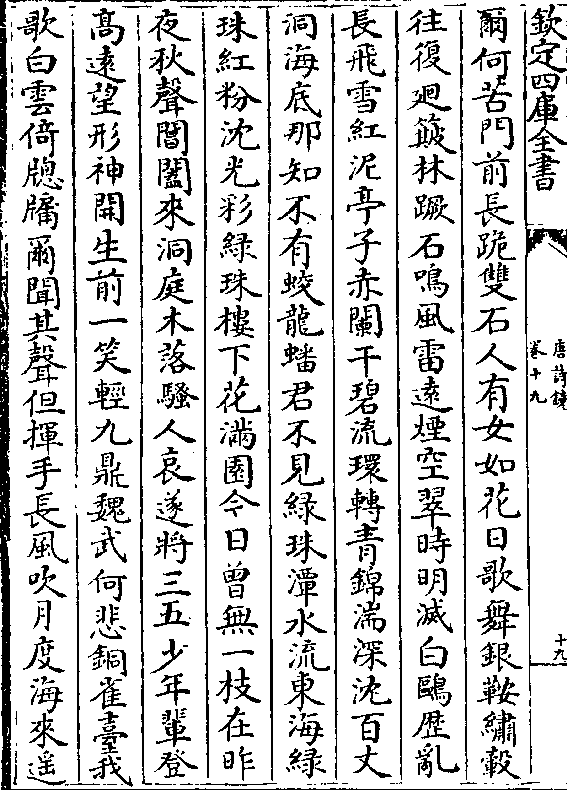 欽定四庫全書
唐詩鏡
卷十九
十九
爾何苦門前長跪雙石人有女如花日歌舞銀鞍繡轂
往復廻簸林蹶石鳴風雷遠煙空翠時明滅白鷗歴亂
長飛雪紅泥亭子赤闌干碧流環轉青錦湍深沈百丈
洞海底那知不有蛟龍蟠君不見緑珠潭水流東海緑
珠紅粉沈光彩緑珠樓下花滿園今日曾無一枝在昨
夜秋聲閶闔來洞庭木落騷人哀遂將三五少年輩登
高遠望形神開生前一笑輕九鼎魏武何悲銅雀臺我
歌白雲倚牕牖爾聞其聲但揮手長風吹月度海來遥